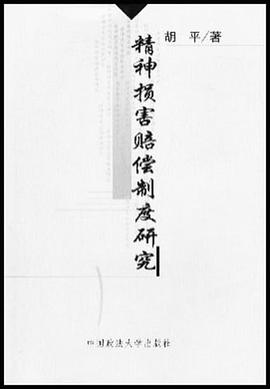 精神损害赔偿制度研究
胡 平/著
中国政法大学出版社